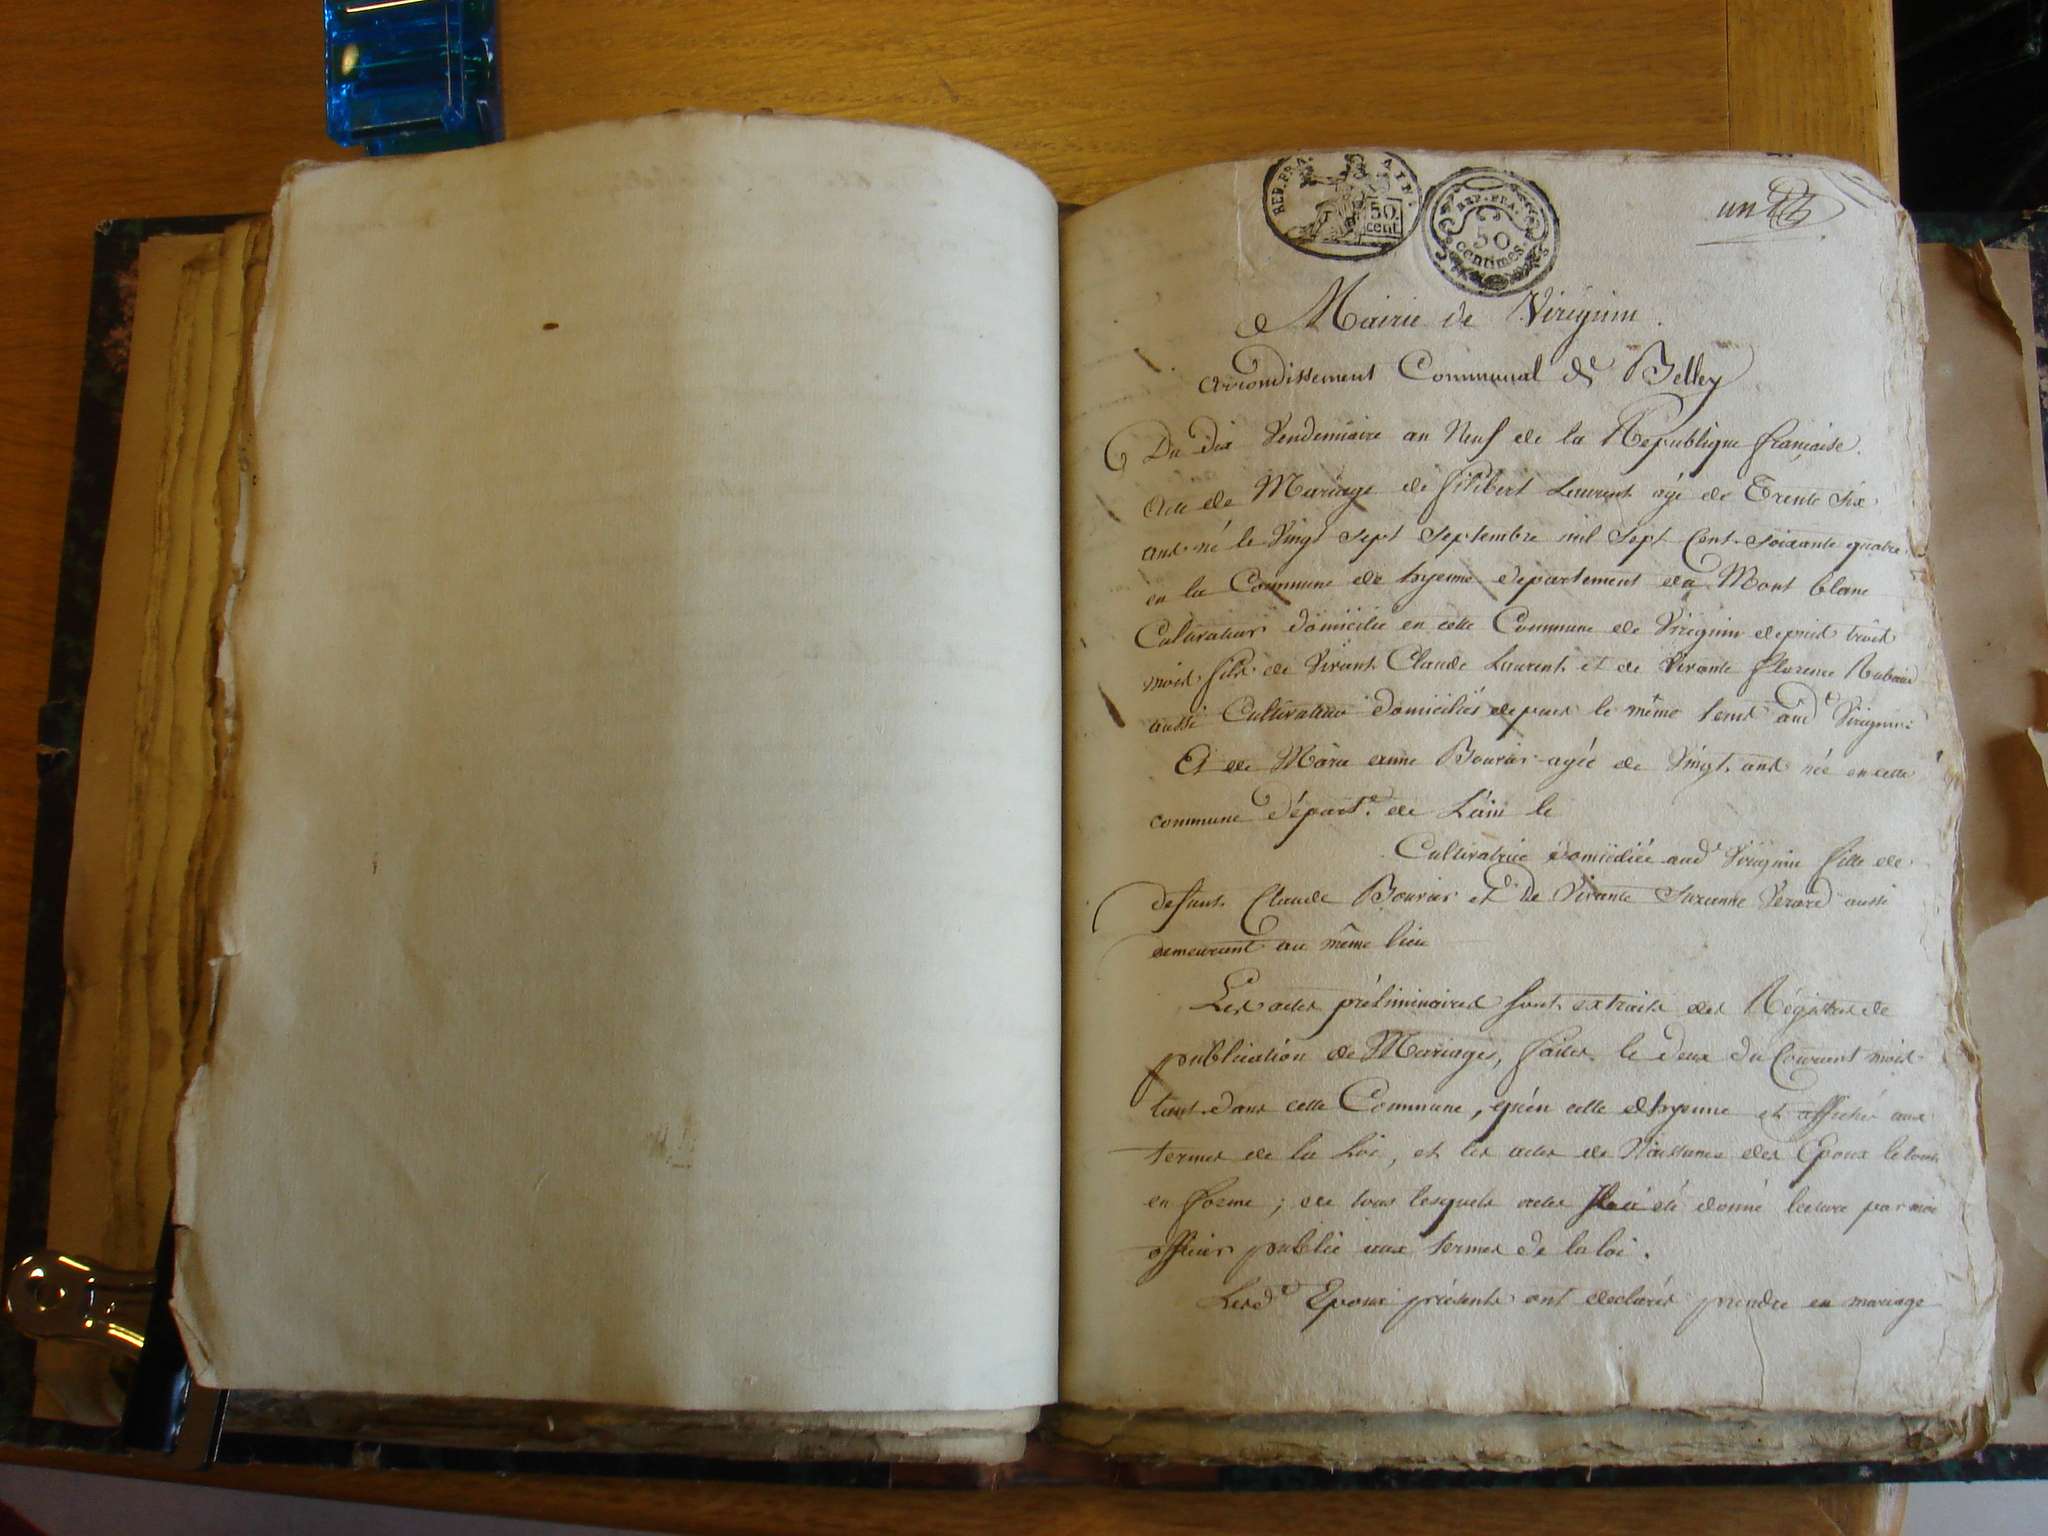 REP. FRA. AIN.
50. cent.
REP. FRA.
50
centimes.
un
Mairie de Virignin.
Arrondissement Communal de Belley
Du dix Vendemiaire an Neuf de la Republique francaise.
Acte de Mariage de filibert Laurent agé de Trente Six
ans né le Vingt sept Septembre mil Sept Cent Soixante quatre
en la Commune de hyenne departement du Mont blanc
Cultivateur domicilié en cette Commune de Virignin depuis trois
mois fils de Vivant Claude Laurent et de Vivante florence
aussi Cultivateur domiciliés depuis le même tems aud Virignin
Et de Marie anne Bouvier agée de Vingt ans née en cette
commune départ.t de L'ain le
Cultivatrice domiciliée aud Virignin fille de
defunt Claude Bouvier et de Vivante Suzanne aussi
demeurant au même lieu
Les actes préliminaires sont extraits des Régistres de
publication de Mariages, faites le deux du Courant mois
tant dans cette Commune, qu'en celle d'hyenne et affiché aux
termes de la Loi, et les actes de Naissance des Epoux le tout
en forme; de tous lesquels actes il a été donné lecture par moi
officier public aux termes de la loi.
Lesd. Epoux présents ont declarés prendre en mariage